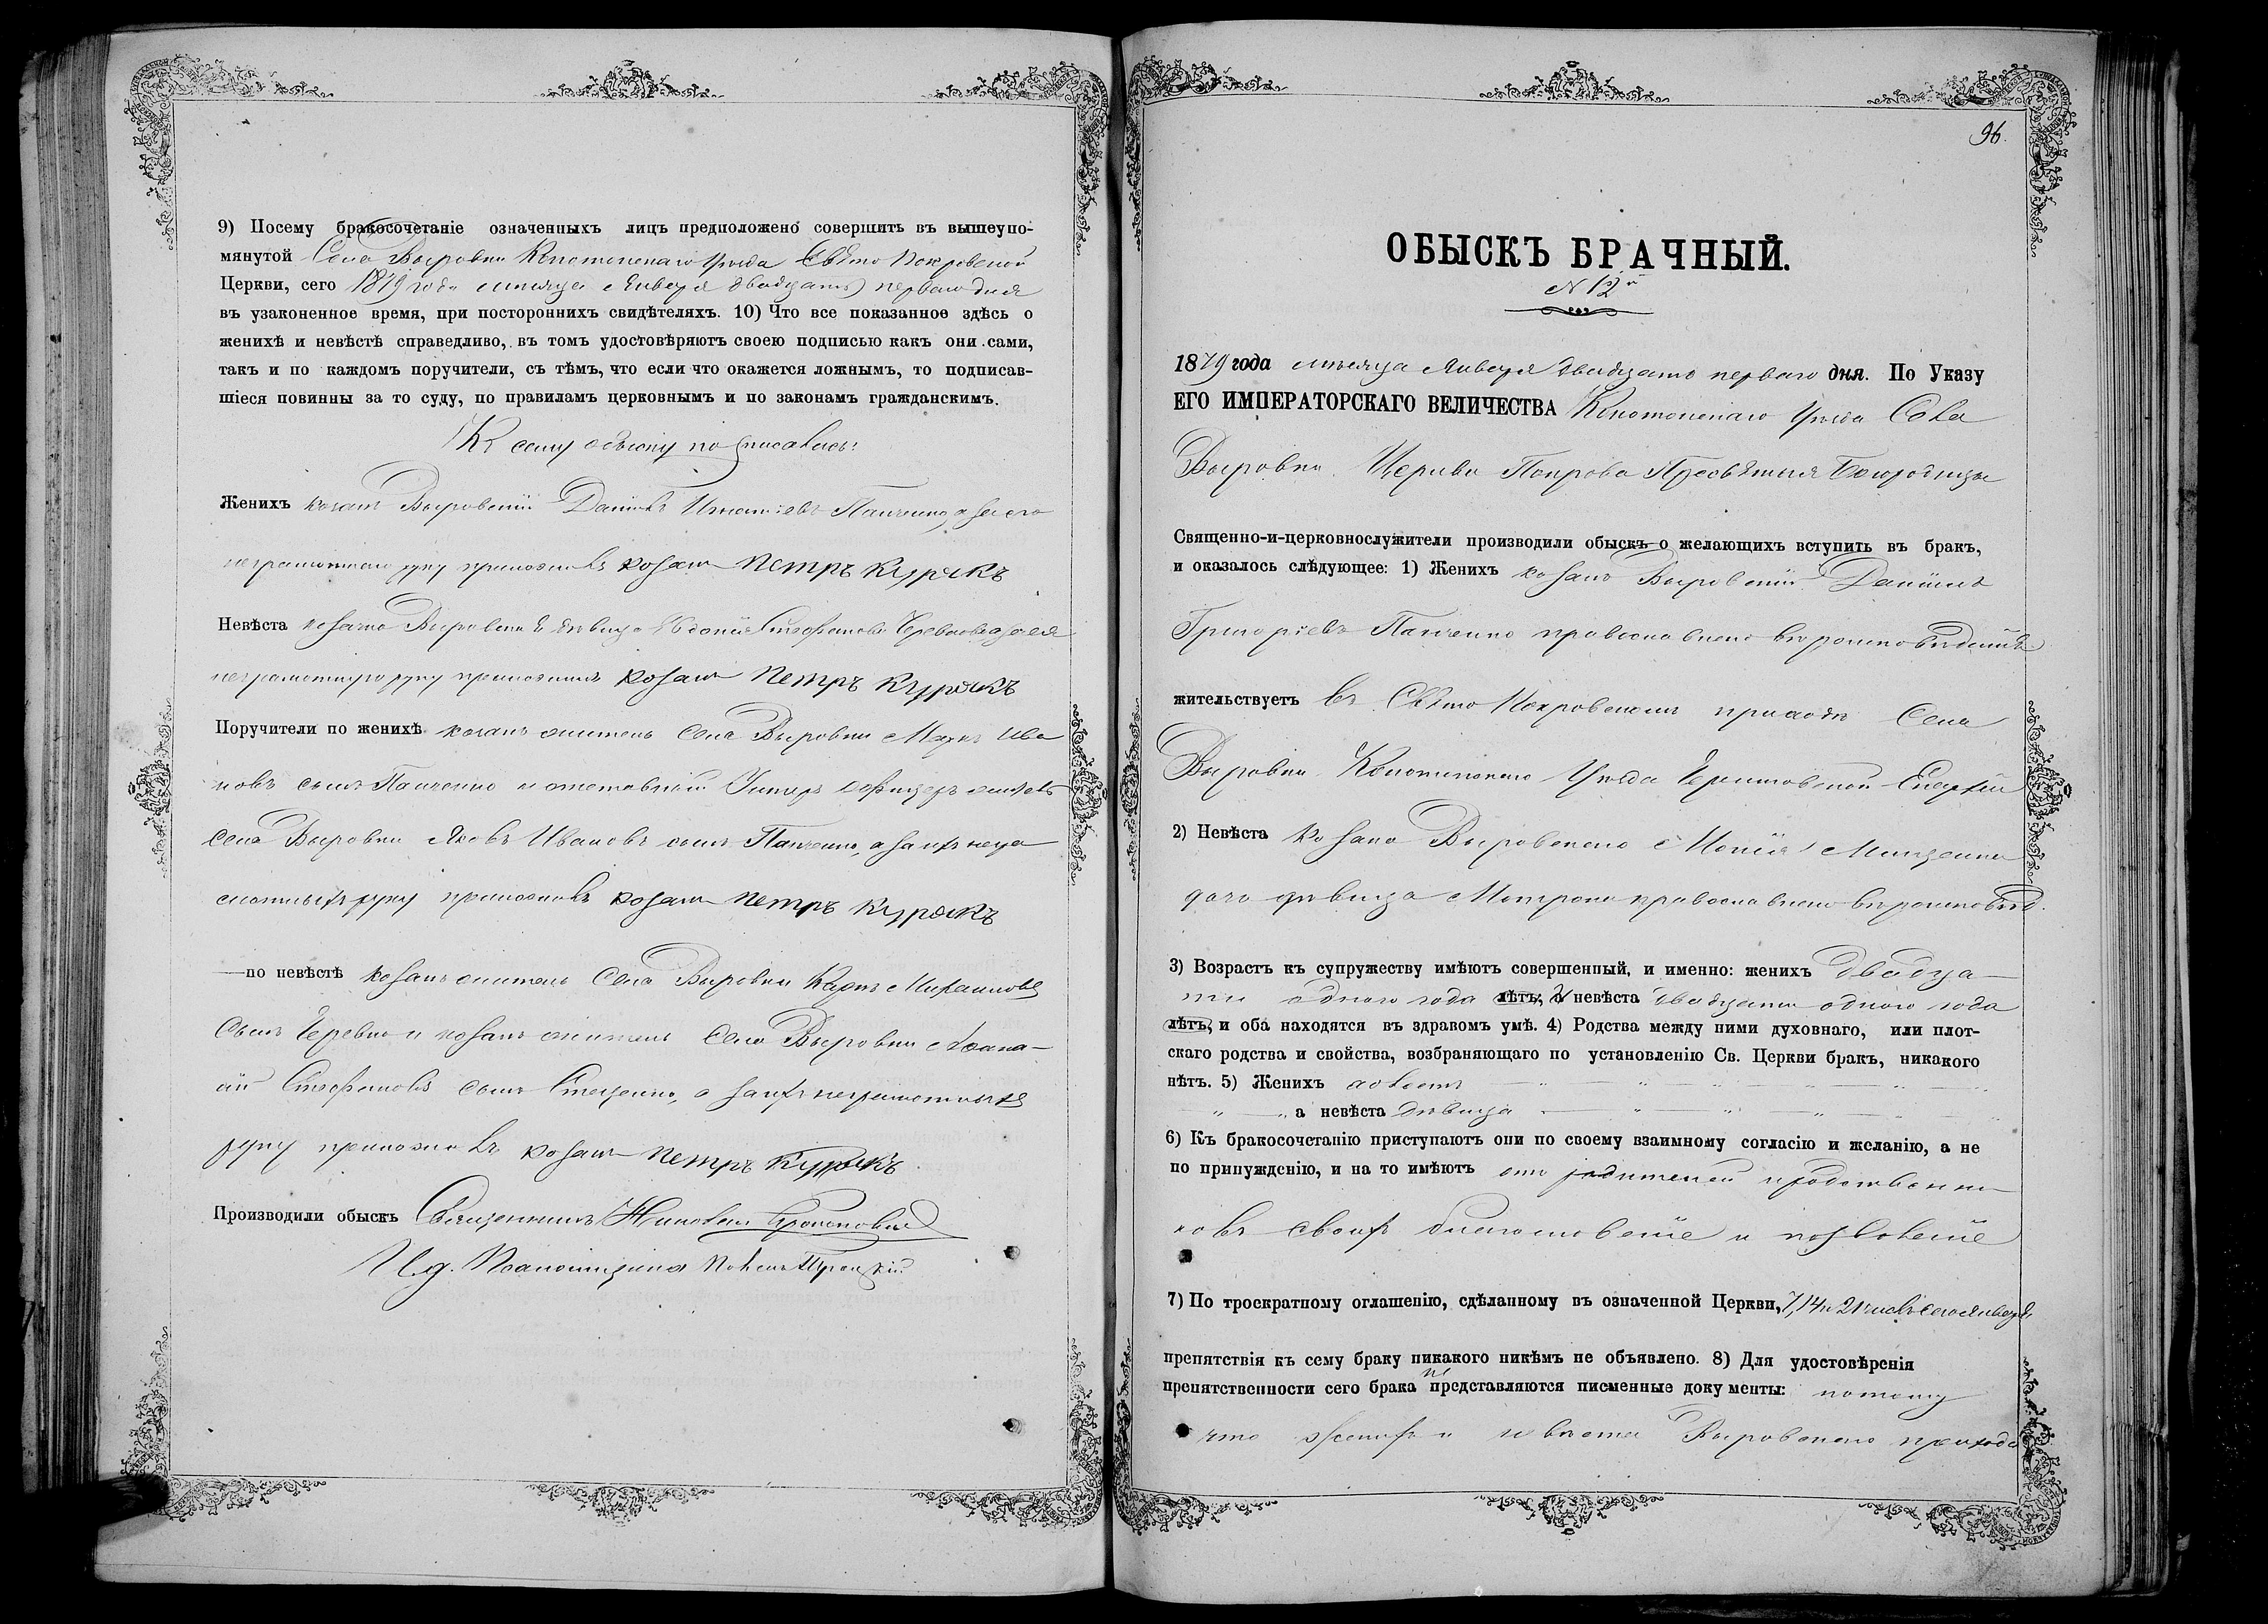 9) Посему бракосочетаніе означенныхъ лицъ предположено совершить въ вышеупо-
мянутой Села Выровки Конотопскаго Уѣзда Свято Покровской
Церкви, сего 1879 года мѣсяца Января двадцать перваго дня
въ узаконенное время, при постороннихъ свидѣтеляхъ. 10) Что все показанное здѣсь о
женихѣ и невѣстѣ справедливо, въ томъ удостовѣряютъ своею подписью какъ они сами,
такъ и по каждомъ поручители, съ тѣмъ, что если что окажется ложнымъ, то подписав-
шіеся повинны за то суду, по правиламъ церковнымъ и по законамъ гражданскимъ.
Къ сему обыску подписались:
Женихъ козакъ Выровскій Даніилъ Панченко, а за его
неграмотнаго руку приложилъ козакъ Петръ Курокъ
Невѣста козачка Выровская дѣвица Евдокія Стефанова а за ея
неграмотную руку приложилъ козакъ Петръ Курокъ
Поручители по женихѣ козакъ житель Села Выровки Маркъ Ива
новъ сынъ Панченко и отставный Унтеръ офицеръ житель
Села Выровки Яковъ Ивановъ сынъ Панченко, а за ихъ негра
мотныхъ руку приложилъ козакъ Петръ Курокъ
—по невѣстѣ козакъ житель Села Выровки Карпъ Михаиловъ
сынъ Черевко и козакъ житель Села Выровки Афана-
сій Стефановъ сынъ Стеценко, а за ихъ неграмотныхъ
руку приложилъ козакъ Петръ Курокъ
Производили обыскъ Священникъ Николай
И. д. Псаломщика Павелъ Троицкій
96.
ОБЫСКЪ БРАЧНЫЙ.
№ 12й
1879 года мѣсяца Января двадцать перваго дня. По Указу
ЕГО ИМПЕРАТОРСКАГО ВЕЛИЧЕСТВА Конотопскаго Уѣзда Села
Выровки Церкви Покрова Пресвятыя Богородицы
Священно-и-церковнослужители производили обыскъ о желающихъ вступить въ бракъ,
и оказалось слѣдующее: 1) Женихъ козакъ Выровскій Даніилъ
Григоріевъ Панченко православнаго вѣроисповѣданія
жительствуетъ въ Свято Покровскомъ приходѣ Села
Выровки Конотопскаго Уѣзда Черниговской Епархіи
2) Невѣста козака Выровскаго Моисія Мищенка
дочь дѣвица Матрона православнаго вѣроисповѣд.
3) Возрастъ къ супружеству имѣютъ совершенный, и именно: женихъ двадца-
ти одного года лѣтъ, а невѣста двадцати одного года
лѣтъ, и оба находятся въ здравомъ умѣ. 4) Родства между ними духовнаго, или плот-
скаго родства и свойства, возбраняющаго по установленію Св. Церкви бракъ, никакого
нѣтъ. 5) Женихъ холостъ — „ — „ —
— „ — „ а невѣста дѣвица — „ — „ —
6) Къ бракосочетанію приступаютъ они по своему взаимному согласію и желанію, а не
по принужденію, и на то имѣютъ отъ родителей и родственни-
ковъ своихъ благословеніе и позволеніе
7) По троекратному оглашенію, сдѣланному въ означенной Церкви, 7, 14 и 21 числъ сего Января
препятствія къ сему браку никакого никѣмъ не объявлено. 8) Для удостовѣренія
препятственности сего брака не представляются писменные документы: потому
что женихъ и невѣста Выровскаго прихода